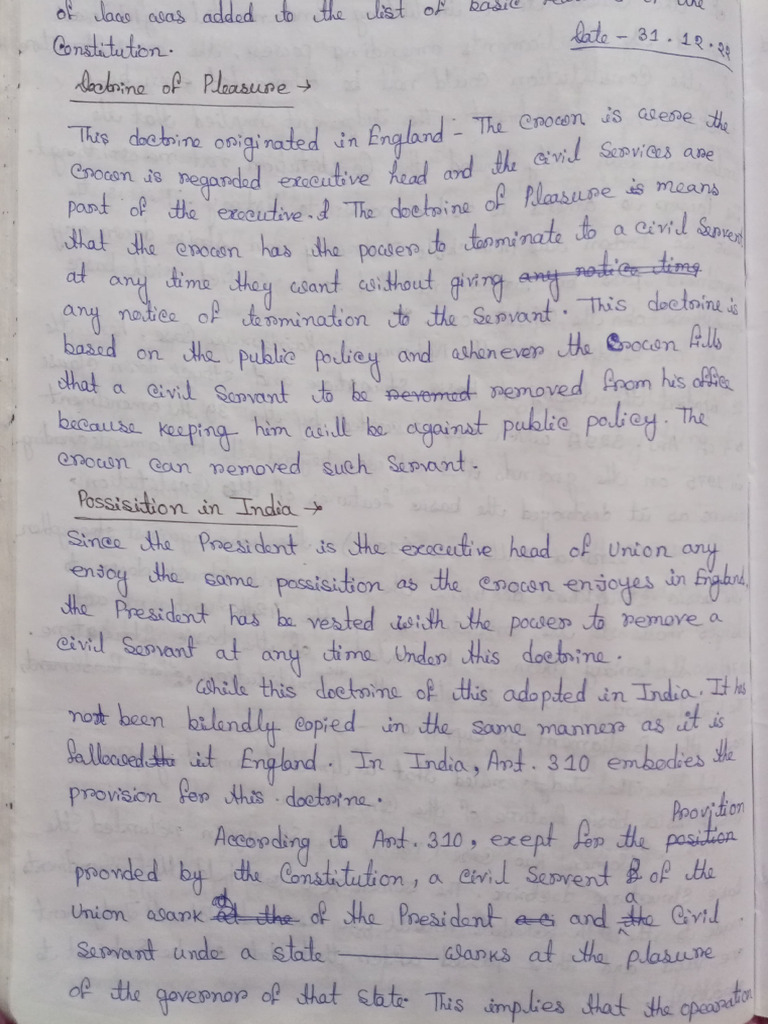 of law was added to the list of basic
Constitution.
Date - 31.12.22
Doctrine of Pleasure →
This doctrine originated in England - The Crown is were the
Crown is regarded executive head and the civil Services are
part of the executive. The doctrine of Pleasure is means
that the crown has the power to terminate to a civil Servent
at any time they want without giving any notice time
any notice of termination to the Servant. This doctrine is
based on the public policy and whenever the Crown fills
that a civil Servant to be removed from his office
because keeping him will be against public policy. The
crown can removed such Servant.
Possisition in India →
Since the President is the executive head of Union any
enjoy the same possisition as the crown enjoyes in England,
the President has be vested with the power to remove a
civil Servant at any time Under this doctrine.
While this doctrine of this adopted in India. It has
not been bilendly copied in the same manner as it is
fallowed the it England. In India, Art. 310 embodies the
provision for this doctrine.
Provition
According to Art. 310, exept for the position
provded by the Constitution, a civil Servent of the
Union wark at the of the President and a the Civil
Servant unde a state ——— warks at the plasure
of the governor of that State. This implies that the opearation